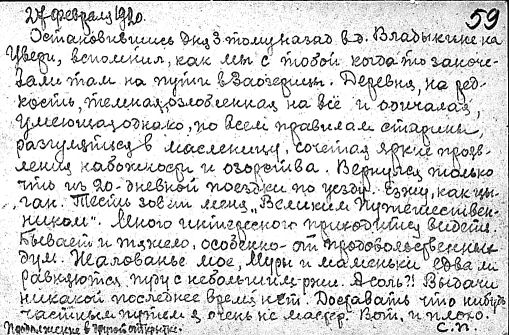 27 февраля 1920.
59
Остановившись дня 3 тому назад в д. Владыкине на
Увери, вспомнил, как мы с тобой когда-то заноче-
вали там на пути в Заозерицы. Деревня, на ред-
кость, темная, озлобленная на всё и одичалая,
умеющая однако, по всем правилам старины,
разгуляться в масленицу, сочетая яркие прояв-
ления набожности и озорства. Вернулся только
что из 20-дневной поездки по уезду. Езжу, как цы-
ган. Тесть зовет меня „Великим Путешествен-
ником". Много интересного приходится видеть.
Бывает и тяжело, особенно от продовольственных
дум. Жалованье мое, Муры и маменьки едва ли
равняются пуду с небольшим ржи. А соль?! Выдачи
никакой последнее время нет. Доставать что нибудь
частным путем я очень не мастер. Вот, и плохо.
Продолжение в другой открытке.
С.П.